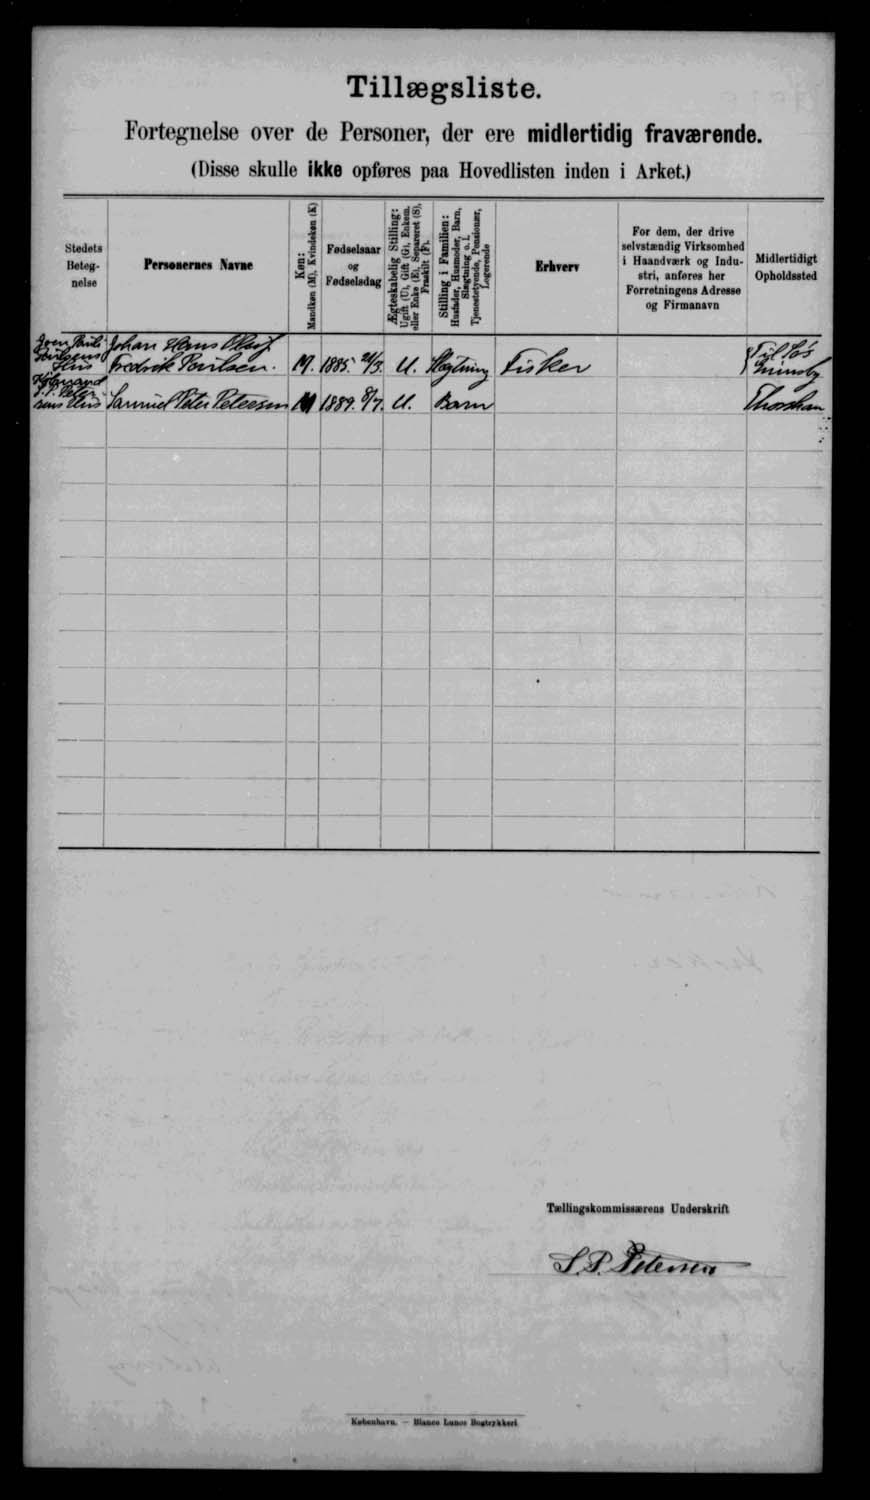 Tillægsliste.
Fortegnelse over de Personer, der ere midlertidig fraværende.
(Disse skulle ikke opføres paa Hovedlisten inden i Arket.)
Stedets
Beteg-
nelse
Personernes Navne
Køn:
Mandkøn (M), Kvindekøn (K)
Fødselsaar
og
Fødselsdag
Ægteskabelig Stilling:
Ugift (U), Gift (G), Enkem.
eller Enke (E), Separeret (S),
Fraskilt (F).
Stilling i Familien:
Husfader, Husmoder, Barn,
Slægtning o. l.
Tjenestetyende, Pensionær,
Logerende
Erhverv
For dem, der drive
selvstændig Virksomhed
i Haandværk og Indu-
stri, anføres her
Forretningens Adresse
og Firmanavn
Midlertidigt
Opholdssted
Poulsens
Hus
Johan Hans Oluf
Fredrik Poulsen.
M.
1885
U.
Slægtning
Fisker
Til Søs
Grimsby
sens Hus
Samuel Peter Petersen
M
1889. 8/7.
U.
Barn
Thorshavn
Tællingskommissærens Underskrift
S. P. Petersen
København. — Bianco Lunos Bogtrykkeri